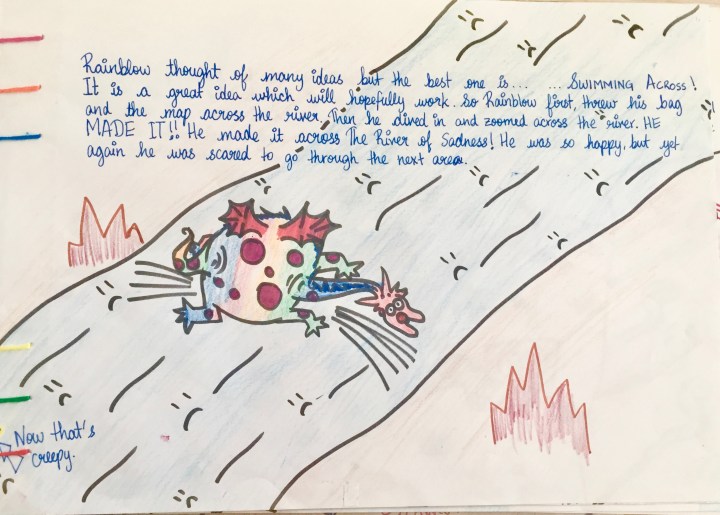 Rainblow thought of many ideas but the best one is... ...SWIMMING ACROSS!
It is a great idea which will hopefully work. So Rainblow first, threw his bag
and the map across the river. Then he dived in and zoomed across the river. HE
MADE IT!! He made it across The River of Sadness! He was so happy, but yet
again he was scared to go through the next area.
Now that's
creepy.